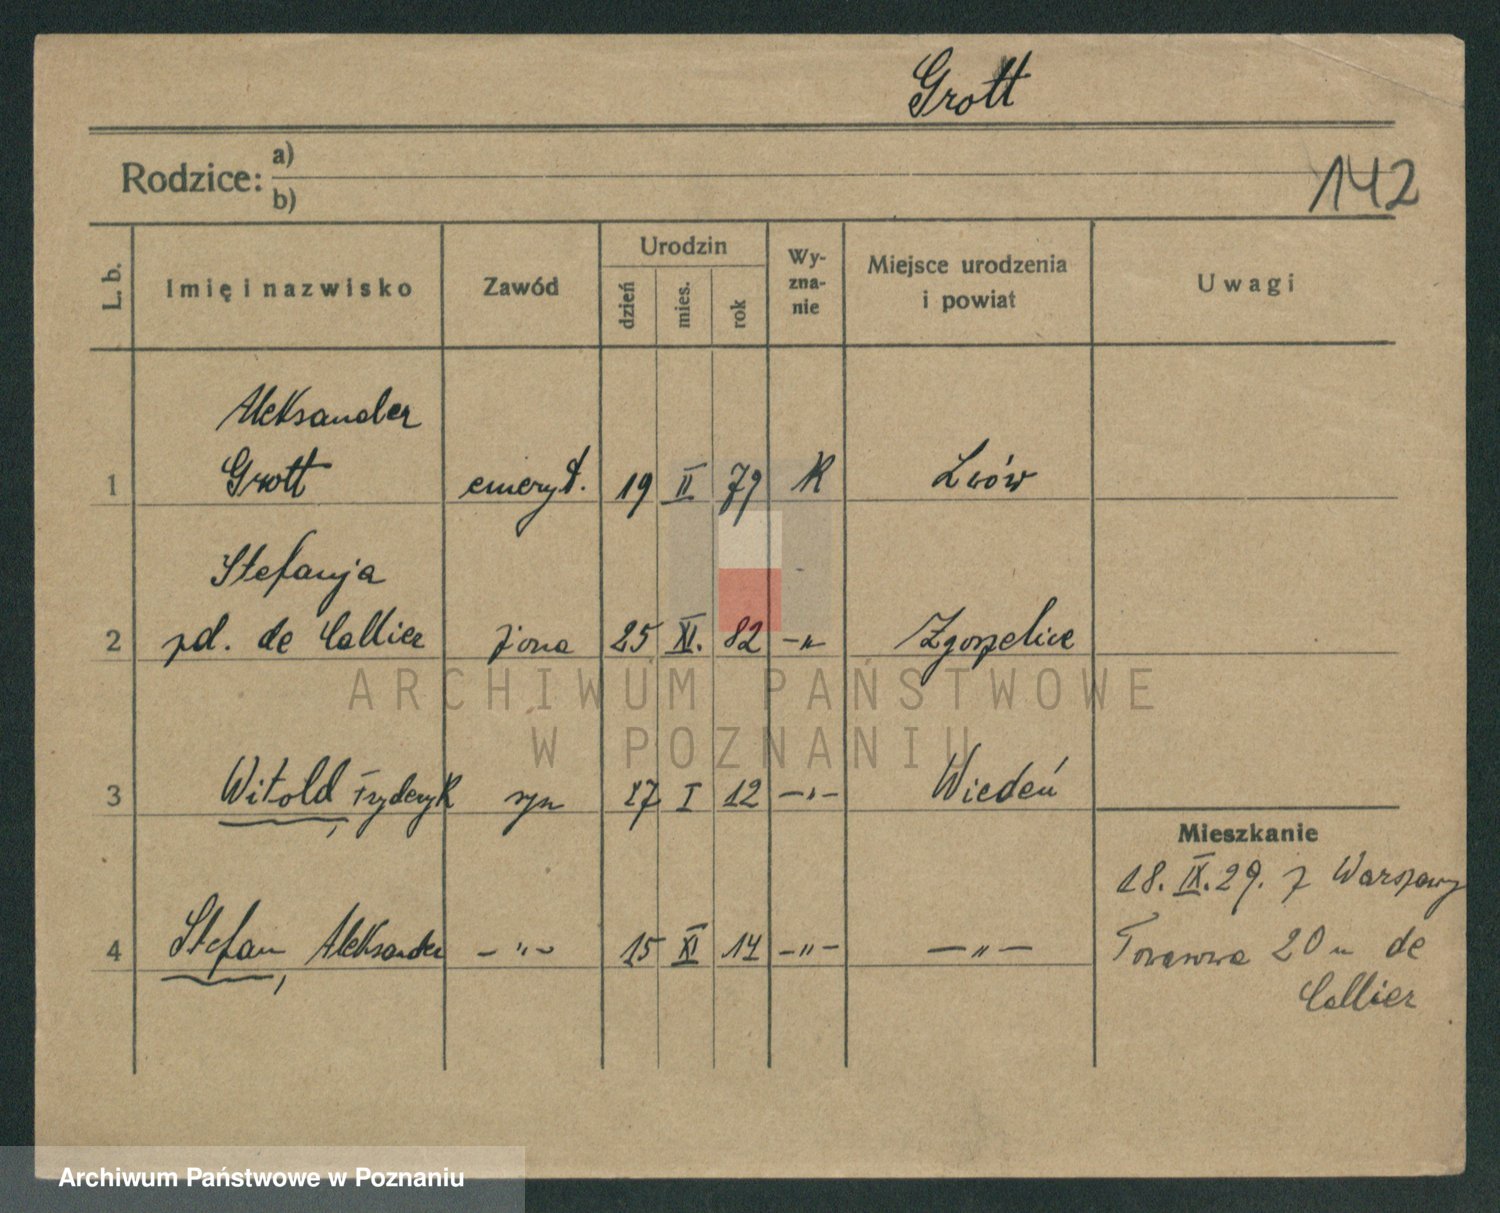 Grott
Rodzice: a)
b)
142
L. b.
Imię i nazwisko
Zawód
Urodzin
dzień
mies.
rok
Wy-
zna-
nie
Miejsce urodzenia
i powiat
Uwagi
Aleksander
1 Grott emeryt. 19 II 79 K Lwów
Stefanja
2 zd. de Callier żona 25 XI. 82 -"- Zgorzelice
3 Witold, Fryderyk syn 17 I 12 -"- Wiedeń
Mieszkanie
18. IX. 29. z Warszawy
4 Stefan, Aleksander -"- 15 XI 14 -"- -"-
20 u de
Callier
ARCHIWUM PAŃSTWOWE
W POZNANIU
Archiwum Państwowe w Poznaniu